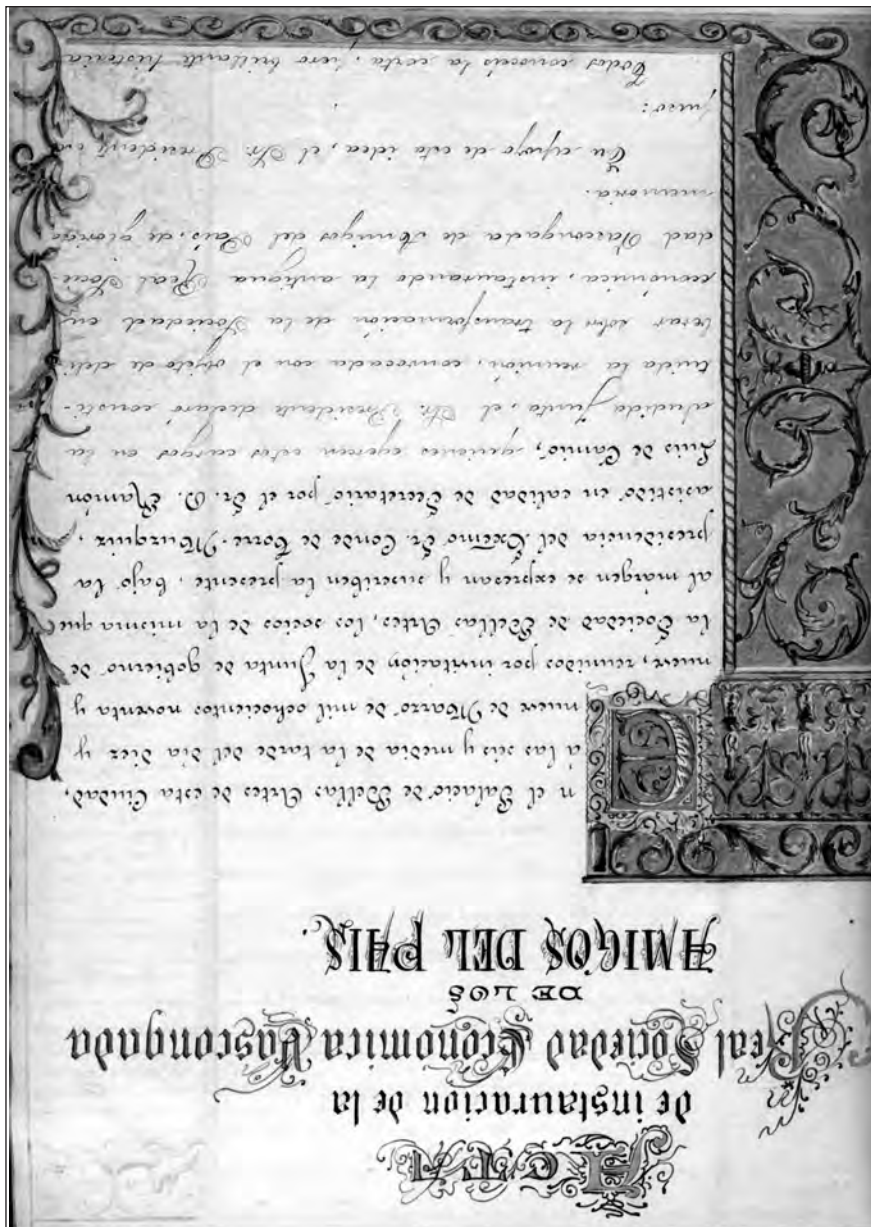 ACTA
de instauracion de la
Real Sociedad Económica Vascongada
DE LOS
AMIGOS DEL PAIS.
En el Palacio de Bellas Artes de esta Ciudad,
á las seis y media de la tarde del dia diez y
nueve de Marzo de mil ochocientos noventa y
nueve, reunidos por invitación de la Junta de gobierno de
la Sociedad de Bellas Artes, los socios de la misma que
al márgen se expresan y suscriben la presente, bajo la
presidencia del Excmo Sr. Conde de Torre-Múzquiz,
asistido en calidad de Secretario por el Sr. D. Ramón
Luis de Camio, quienes ejercen estos cargos en la
aludida Junta, el Sr. Presidente declaró consti-
tuida la reunión, convocada con el objeto de deli-
berar sobre la transformación de la Sociedad en
económica, instaurando la antigua Real Socie-
dad Vascongada de Amigos del País, de gloriosa
memoria.
En apoyo de esta idea, el Sr. Presidente ex-
puso:
Todos conocéis la corta, pero brillante historia